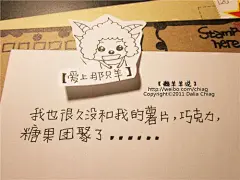 Stamp
here
【爱上那只羊】
【懒羊羊说】
http://weibo.com/chiag
Copyright©2011 Dalia Chiag
我也很久没和我的薯片，巧克力，
糖果团聚了......